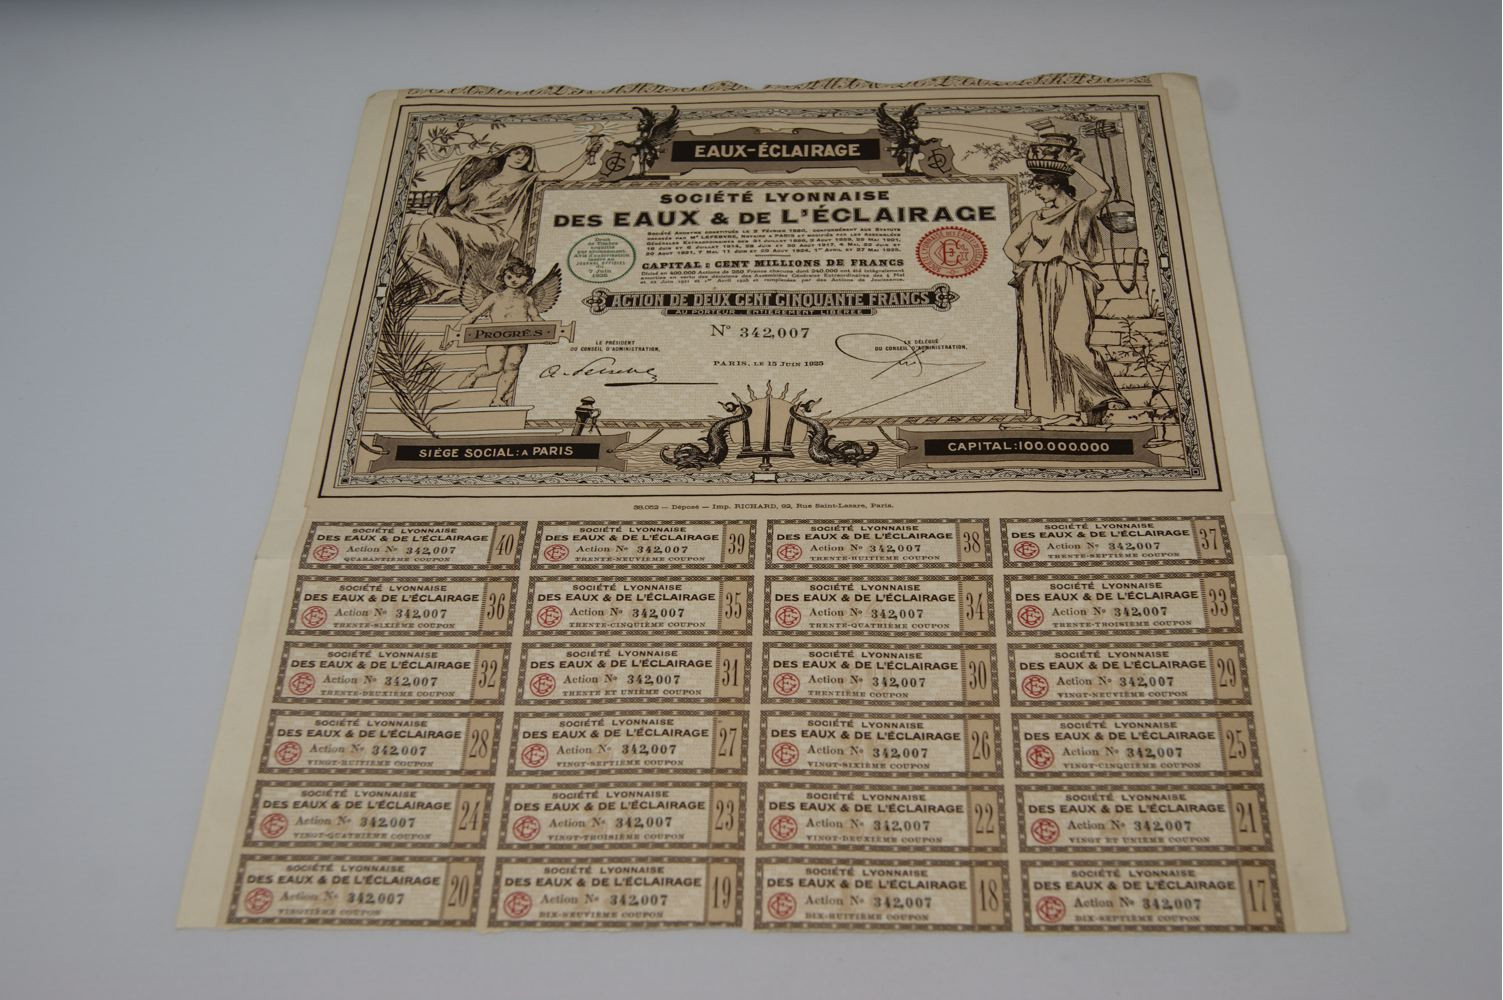 EAUX-ÉCLAIRAGE
SOCIÉTÉ LYONNAISE
DES EAUX & DE L'ÉCLAIRAGE
SOCIÉTÉ ANONYME CONSTITUÉE LE 2 FÉVRIER 1880, CONFORMÉMENT AUX STATUTS
CAPITAL : CENT MILLIONS DE FRANCS
Divisé en 400.000 Actions de 250 Francs chacune dont 240.000 ont été intégralement
ACTION DE DEUX CENT CINQUANTE FRANCS
AU PORTEUR ENTIÈREMENT LIBÉRÉE
N° 342,007
LE PRÉSIDENT
DU CONSEIL D'ADMINISTRATION,
LE DÉLÉGUÉ
DU CONSEIL D'ADMINISTRATION,
PARIS, LE 15 JUIN 1925
PROGRÈS
SIÈGE SOCIAL: A PARIS
CAPITAL:100.000.000
38.052 — Déposé — Imp. RICHARD, 92, Rue Saint-Lazare, Paris.
SOCIÉTÉ LYONNAISE
DES EAUX & DE L'ÉCLAIRAGE
Action N° 342,007
QUARANTIÈME COUPON
40
SOCIÉTÉ LYONNAISE
DES EAUX & DE L'ÉCLAIRAGE
Action N° 342,007
TRENTE-NEUVIÈME COUPON
39
SOCIÉTÉ LYONNAISE
DES EAUX & DE L'ÉCLAIRAGE
Action N° 342,007
TRENTE-HUITIÈME COUPON
38
SOCIÉTÉ LYONNAISE
DES EAUX & DE L'ÉCLAIRAGE
Action N° 342,007
TRENTE-SEPTIÈME COUPON
37
SOCIÉTÉ LYONNAISE
DES EAUX & DE L'ÉCLAIRAGE
Action N° 342,007
TRENTE-SIXIÈME COUPON
36
SOCIÉTÉ LYONNAISE
DES EAUX & DE L'ÉCLAIRAGE
Action N° 342,007
TRENTE-CINQUIÈME COUPON
35
SOCIÉTÉ LYONNAISE
DES EAUX & DE L'ÉCLAIRAGE
Action N° 342,007
TRENTE-QUATRIÈME COUPON
34
SOCIÉTÉ LYONNAISE
DES EAUX & DE L'ÉCLAIRAGE
Action N° 342,007
TRENTE-TROISIÈME COUPON
33
SOCIÉTÉ LYONNAISE
DES EAUX & DE L'ÉCLAIRAGE
Action N° 342,007
TRENTE-DEUXIÈME COUPON
32
SOCIÉTÉ LYONNAISE
DES EAUX & DE L'ÉCLAIRAGE
Action N° 342,007
TRENTE ET UNIÈME COUPON
31
SOCIÉTÉ LYONNAISE
DES EAUX & DE L'ÉCLAIRAGE
Action N° 342,007
TRENTIÈME COUPON
30
SOCIÉTÉ LYONNAISE
DES EAUX & DE L'ÉCLAIRAGE
Action N° 342,007
VINGT-NEUVIÈME COUPON
29
SOCIÉTÉ LYONNAISE
DES EAUX & DE L'ÉCLAIRAGE
Action N° 342,007
VINGT-HUITIÈME COUPON
28
SOCIÉTÉ LYONNAISE
DES EAUX & DE L'ÉCLAIRAGE
Action N° 342,007
VINGT-SEPTIÈME COUPON
27
SOCIÉTÉ LYONNAISE
DES EAUX & DE L'ÉCLAIRAGE
Action N° 342,007
VINGT-SIXIÈME COUPON
26
SOCIÉTÉ LYONNAISE
DES EAUX & DE L'ÉCLAIRAGE
Action N° 342,007
VINGT-CINQUIÈME COUPON
25
SOCIÉTÉ LYONNAISE
DES EAUX & DE L'ÉCLAIRAGE
Action N° 342,007
VINGT-QUATRIÈME COUPON
24
SOCIÉTÉ LYONNAISE
DES EAUX & DE L'ÉCLAIRAGE
Action N° 342,007
VINGT-TROISIÈME COUPON
23
SOCIÉTÉ LYONNAISE
DES EAUX & DE L'ÉCLAIRAGE
Action N° 342,007
VINGT-DEUXIÈME COUPON
22
SOCIÉTÉ LYONNAISE
DES EAUX & DE L'ÉCLAIRAGE
Action N° 342,007
VINGT ET UNIÈME COUPON
21
SOCIÉTÉ LYONNAISE
DES EAUX & DE L'ÉCLAIRAGE
Action N° 342,007
VINGTIÈME COUPON
20
SOCIÉTÉ LYONNAISE
DES EAUX & DE L'ÉCLAIRAGE
Action N° 342,007
DIX-NEUVIÈME COUPON
19
SOCIÉTÉ LYONNAISE
DES EAUX & DE L'ÉCLAIRAGE
Action N° 342,007
DIX-HUITIÈME COUPON
18
SOCIÉTÉ LYONNAISE
DES EAUX & DE L'ÉCLAIRAGE
Action N° 342,007
DIX-SEPTIÈME COUPON
17